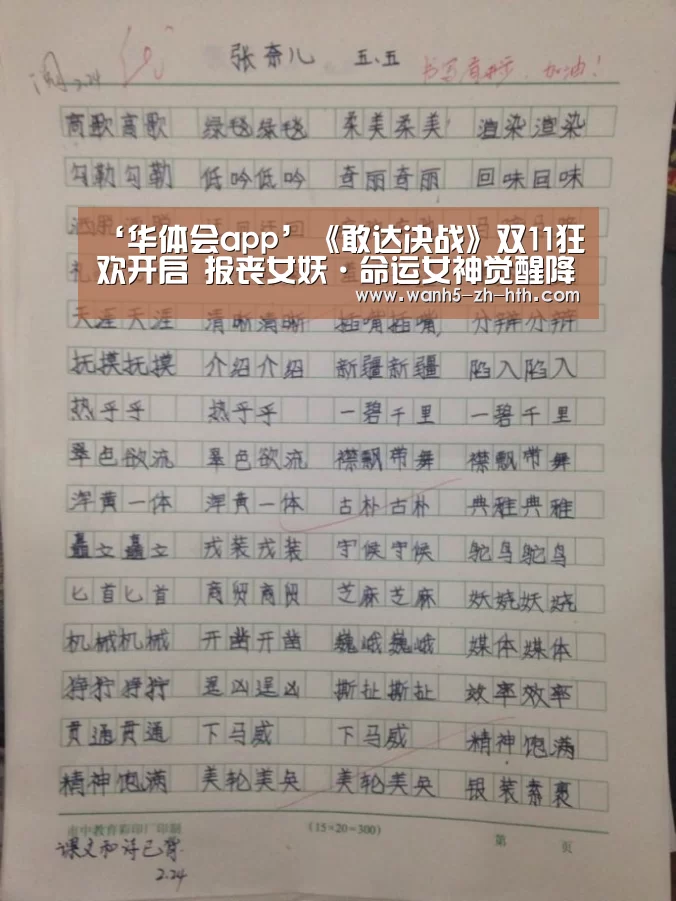 阅 2.24 优 张奈儿 五、五 书写有进步，加油！
高歌高歌 绿毯绿毯 柔美柔美 渲染渲染
勾勒勾勒 低吟低吟 奇丽奇丽 回味回味
‘华体会app’《敢达决战》双11狂
欢开启 报丧女妖·命运女神觉醒降
www.wanh5-zh-hth.com
天涯天涯 清晰清晰 插嘴插嘴 分辨分辩
抚摸抚摸 介绍介绍 新疆新疆 陷入陷入
热乎乎 热乎乎 一碧千里 一碧千里
翠色欲流 翠色欲流 襟飘带舞 襟飘带舞
浑黄一体 浑黄一体 古朴古朴 典雅典雅
矗立矗立 戎装戎装 守候守候 鸵鸟鸵鸟
匕首匕首 商贸商贸 芝麻芝麻 妖娆妖娆
机械机械 开凿开凿 巍峨巍峨 媒体媒体
狰狞狰狞 逞凶逞凶 撕扯撕扯 效率效率
贯通贯通 下马威 下马威 精神饱满
精神饱满 美轮美奂 美轮美奂 银装素裹
市中教育彩印厂印制 (15×20=300) 第 页
课文和诗已背
2.24